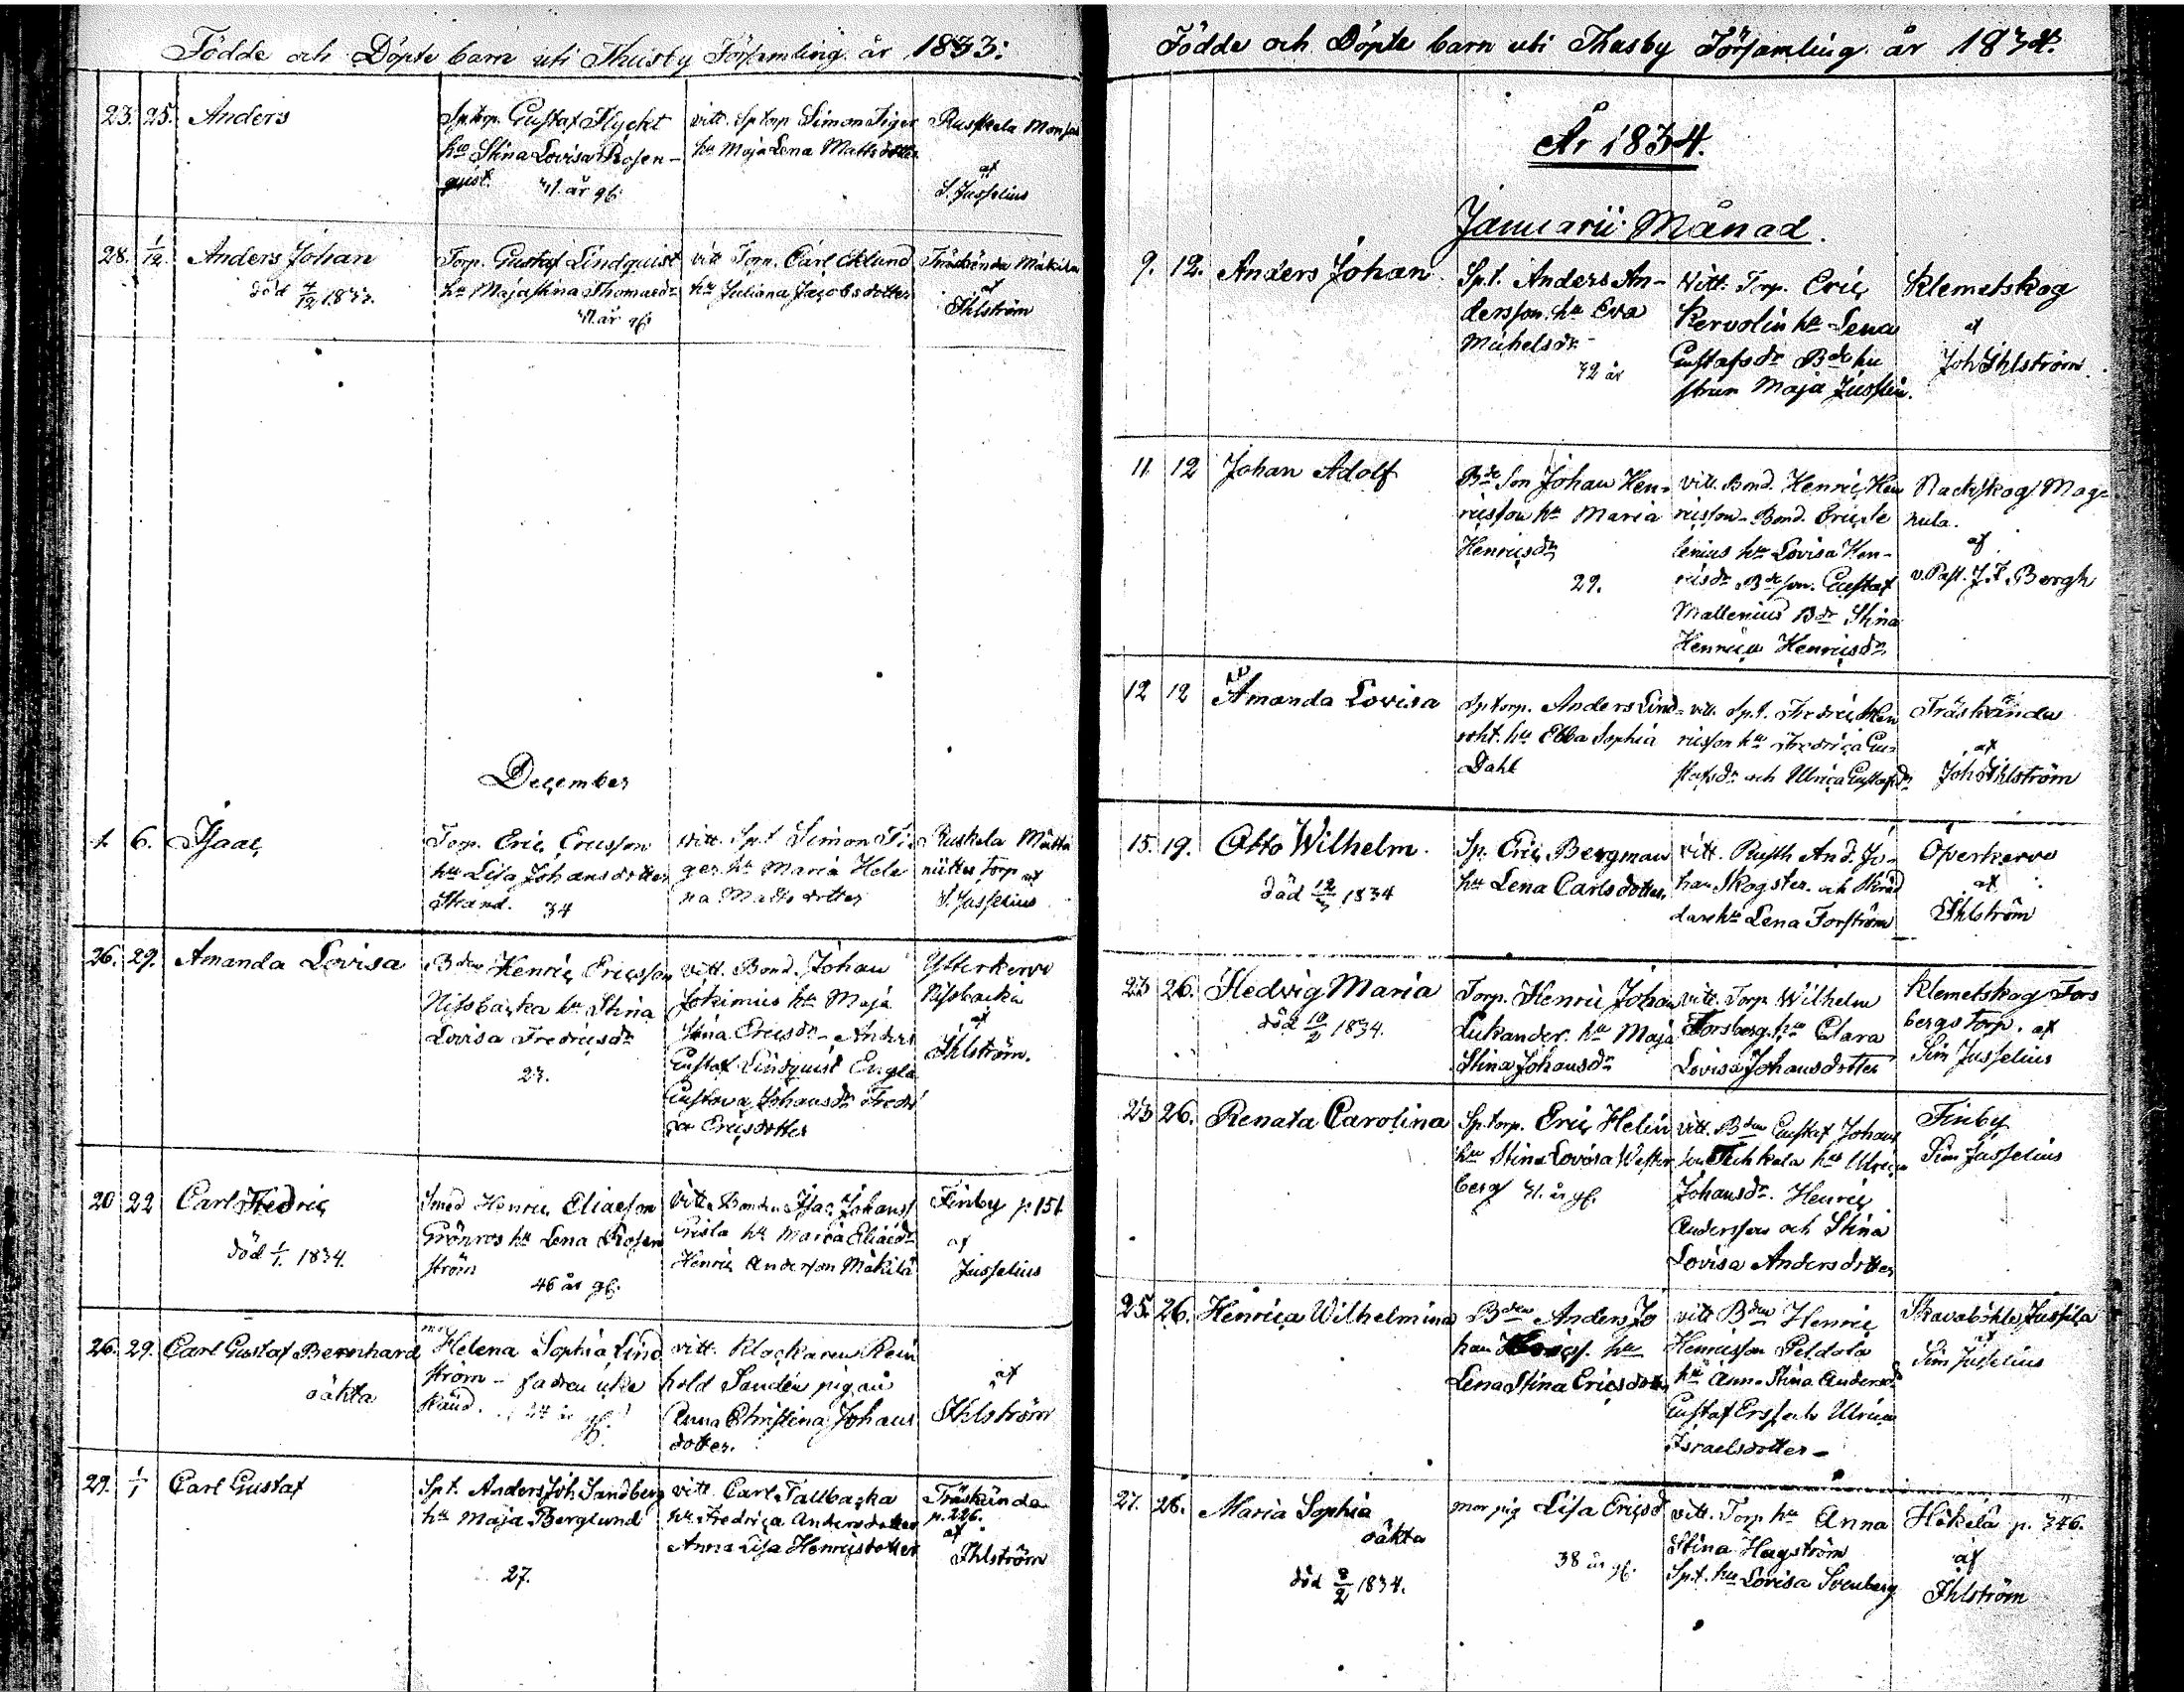 Födde och Döpte barn uti Thusby Församling år 1833:
23. 25. Anders
Sptorp. Gustaf Flyckt
hu Stina Lovisa Rosen-
quist. 41. år gl:
vitt. Sptorp Simon Tiger
hu Maja Lena Mattsdotter
Ruskela
af
S. Jusselius
28. 1/12 Anders Johan
död 4/12 1833.
Torp. Gustaf Lindquist
hu Maja Stina Thomasdr
41. år gl:
vitt Torp. Carl Eklund
hu Juliana Jacobsdotter
Träskända Mäkilä
af
Ihlström
December
1. 6. Isaac
Torp. Eric Ericsson
hu Lisa Johansdotter
Strand. 34
vitt. Spt Simon Ti-
ger hu Maria Hele
na Mattsdotter
Ruskela
torp af
S. Jusselius
26. 29. Amanda Lovisa
Bden Henric Ericsson
Nissbacka hu Stina
Lovisa Fredricsdr
23.
vitt. Bond. Johan
Jokimies hu Maja
Stina Ericsdr - Anders
Gustaf Lindquist Engla
Gustava Johansdr Fredri
ca Ericsdotter
Ytterkervo
Nissbacka
af
Ihlström.
20 22 Carl Fredric
död 1/1. 1834.
Smed Henric Eliaeson
Grönros hu Lena Rosen
ström
46 år gl:
vitt. Bonden Isac Johanss
Crisla hu Maria Eliaedr
Henric Anderson Mäkilä
Finby p: 151
af
Jusselius
26. 29. Carl Gustaf Bernhard
oäkta
mor Helena Sophia Lind
ström - fadren okä
känd. 24 år gl:
vitt. Klockaren Rein
hold Sandén pigan
Anna Christina Johans
dotter.
af
Ihlström
29. 1/1 Carl Gustaf
Spt. Anders Joh Sandberg
hu Maja Berglund
27.
vitt. Carl Tallbacka
hu Fredrica Andersdotter
Anna Lisa Henricsdotter
Träskända
p. 226.
af
Ihlström
Födde och Döpte barn uti Thusby Församling år 1834.
År 1834.
Januarii Månad.
9. 12. Anders Johan
Spt. Anders An-
dersson. hu Eva
Michelsdr -
42 år
Vitt. Torp. Eric
Kervolin hu Lena
Gustafsdr Bde hu
strun Maja Jusslin.
Klemetskog
af
Joh Ihlström.
11. 12 Johan Adolf
Bde Son Johan Hen-
ricsson hu Maria
Henricsdr
29.
vitt. Bond. Henric Hen
ricsson - Bond. Eric
lenius hu Lovisa Hen-
ricsdr Bde son. Gustaf
Mallenius Bdr Stina
Henrica Henricsdr
Nackskog Mag-
nula.
af
v. Past. J. F. Bergh
12 12 Amanda Lovisa
Sptorp. Anders Lind-
roht. hu Ebba Sophia
Dahl
vitt. Spt. Fredric Hen
ricsson hu Fredrica Gu-
stafsdr och Ulrica Gustafsdr
Träskända
af
Joh Ihlström
15. 19. Otto Wilhelm.
död 12/3 1834
Sp. Eric Bergman
hu Lena Carlsdotter.
vitt. Rusth And. Jo-
han Skogster. och Skräd
dare hu Lena Forsström
Öfverkervo
af
Ihlström
23 26. Hedvig Maria
död 10/2 1834.
Torp. Henric Johan
Lukander. hu Maja
Stina Johansdr
vitt. Torp Wilhelm
Forsberg. hu Clara
Lovisa Johansdotter
Klemetskog Fors
bergs torp. af
Sim Jusselius
23 26. Renata Carolina
Sptorp. Eric Helin
hu Stina Lovisa Wester
berg 41. år gl.
vitt. Bden Gustaf Johans
son hu Ulrica
Johansdr. Henric
Andersson och Stina
Lovisa Andersdotter
Finby
Sim Jusselius
25. 26. Henrica Wilhelmina
Bden Anders Jo
han hu
Lena Stina Ericsdotter
vitt Bden Henric
Henricsson Peldola
hu Anna Stina Andersdr
Gustaf Erss och Ulrica
Israelsdotter -
Skavaböhle Jussila
af
Sim Jusselius
27. 26. Maria Sophia
oäkta
död 3/2 1834.
mor pig Lisa Ericsd
38 år gl.
vitt. Torp hu Anna
Stina Hagström
Spt. hu Lovisa Svenberg
Häkelä p. 346.
af
Ihlström